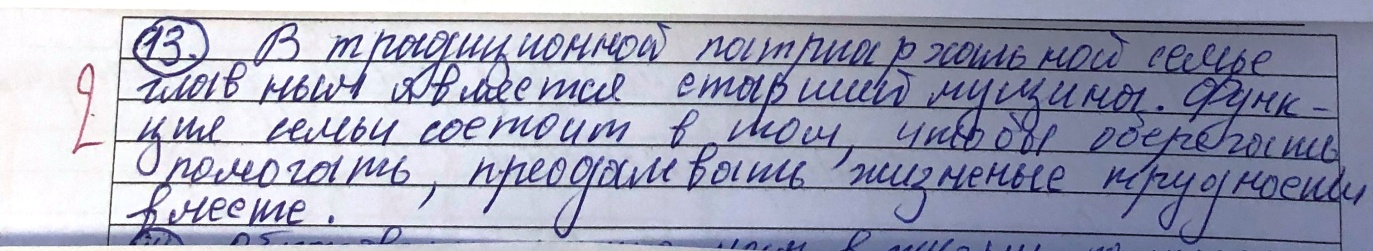 13. В традиционной патриархальной семье
главным является старший мущина. Функ-
ция семьи состоит в том, чтобы оберегать
помогать, преодалевать жизненые трудности
вместе.
2